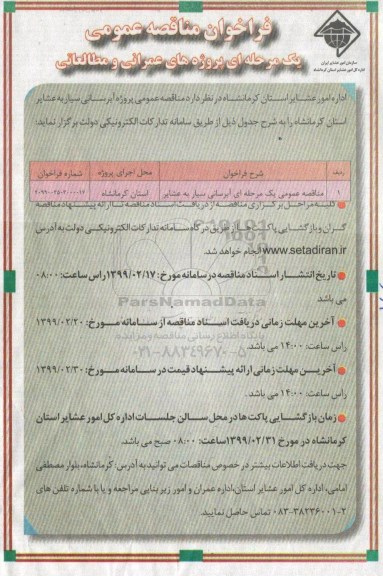 فراخوان مناقصه عمومی
یک مرحله ای پروژه های عمرانی و مطالعاتی
سازمان امور عشایر ایران
اداره کل امور عشایر استان کرمانشاه
اداره امور عشایر استان کرمانشاه در نظر دارد مناقصه عمومی پروژه آبرسانی سیار به عشایر
استان کرمانشاه را به شرح جدول ذیل از طریق سامانه تدارکات الکترونیکی دولت برگزار نماید:
ردیف شرح فراخوان محل اجرای پروژه شماره فراخوان
۱ مناقصه عمومی یک مرحله ای آبرسانی سیار به عشایر استان کرمانشاه
کلیه مراحل برگزاری مناقصه از دریافت اسناد مناقصه تا ارائه پیشنهاد مناقصه
گران و بازگشایی پاکت ها از طریق درگاه سامانه تدارکات الکترونیکی دولت به آدرس
www.setadiran.ir انجام خواهد شد.
تاریخ انتشار اسناد مناقصه در سامانه مورخ: ۱۳۹۹/۰۲/۱۷ راس ساعت: ۰۸:۰۰
می باشد
آخرین مهلت زمانی دریافت اسناد مناقصه از سامانه مورخ: ۱۳۹۹/۰۲/۲۰
راس ساعت: ۱۴:۰۰ می باشد.
آخرین مهلت زمانی ارائه پیشنهاد قیمت در سامانه مورخ: ۱۳۹۹/۰۲/۳۰
راس ساعت: ۱۴:۰۰ می باشد.
زمان بازگشایی پاکت ها در محل سالن جلسات اداره کل امور عشایر استان
کرمانشاه در مورخ ۱۳۹۹/۰۲/۳۱ ساعت: ۰۸:۰۰ صبح می باشد.
جهت دریافت اطلاعات بیشتر در خصوص مناقصات می توانید به آدرس: کرمانشاه، بلوار مصطفی
امامی، اداره کل امور عشایر استان، اداره عمران و امور زیربنایی مراجعه و یا با شماره تلفن های
۰۸۳-۳۸۲۳۶۰۰۱-۲ تماس حاصل نمایید.
ParsNamadData
پایگاه اطلاع رسانی مناقصه و مزایده
۰۲۱-۸۸۳۴۹۶۷۰-۵